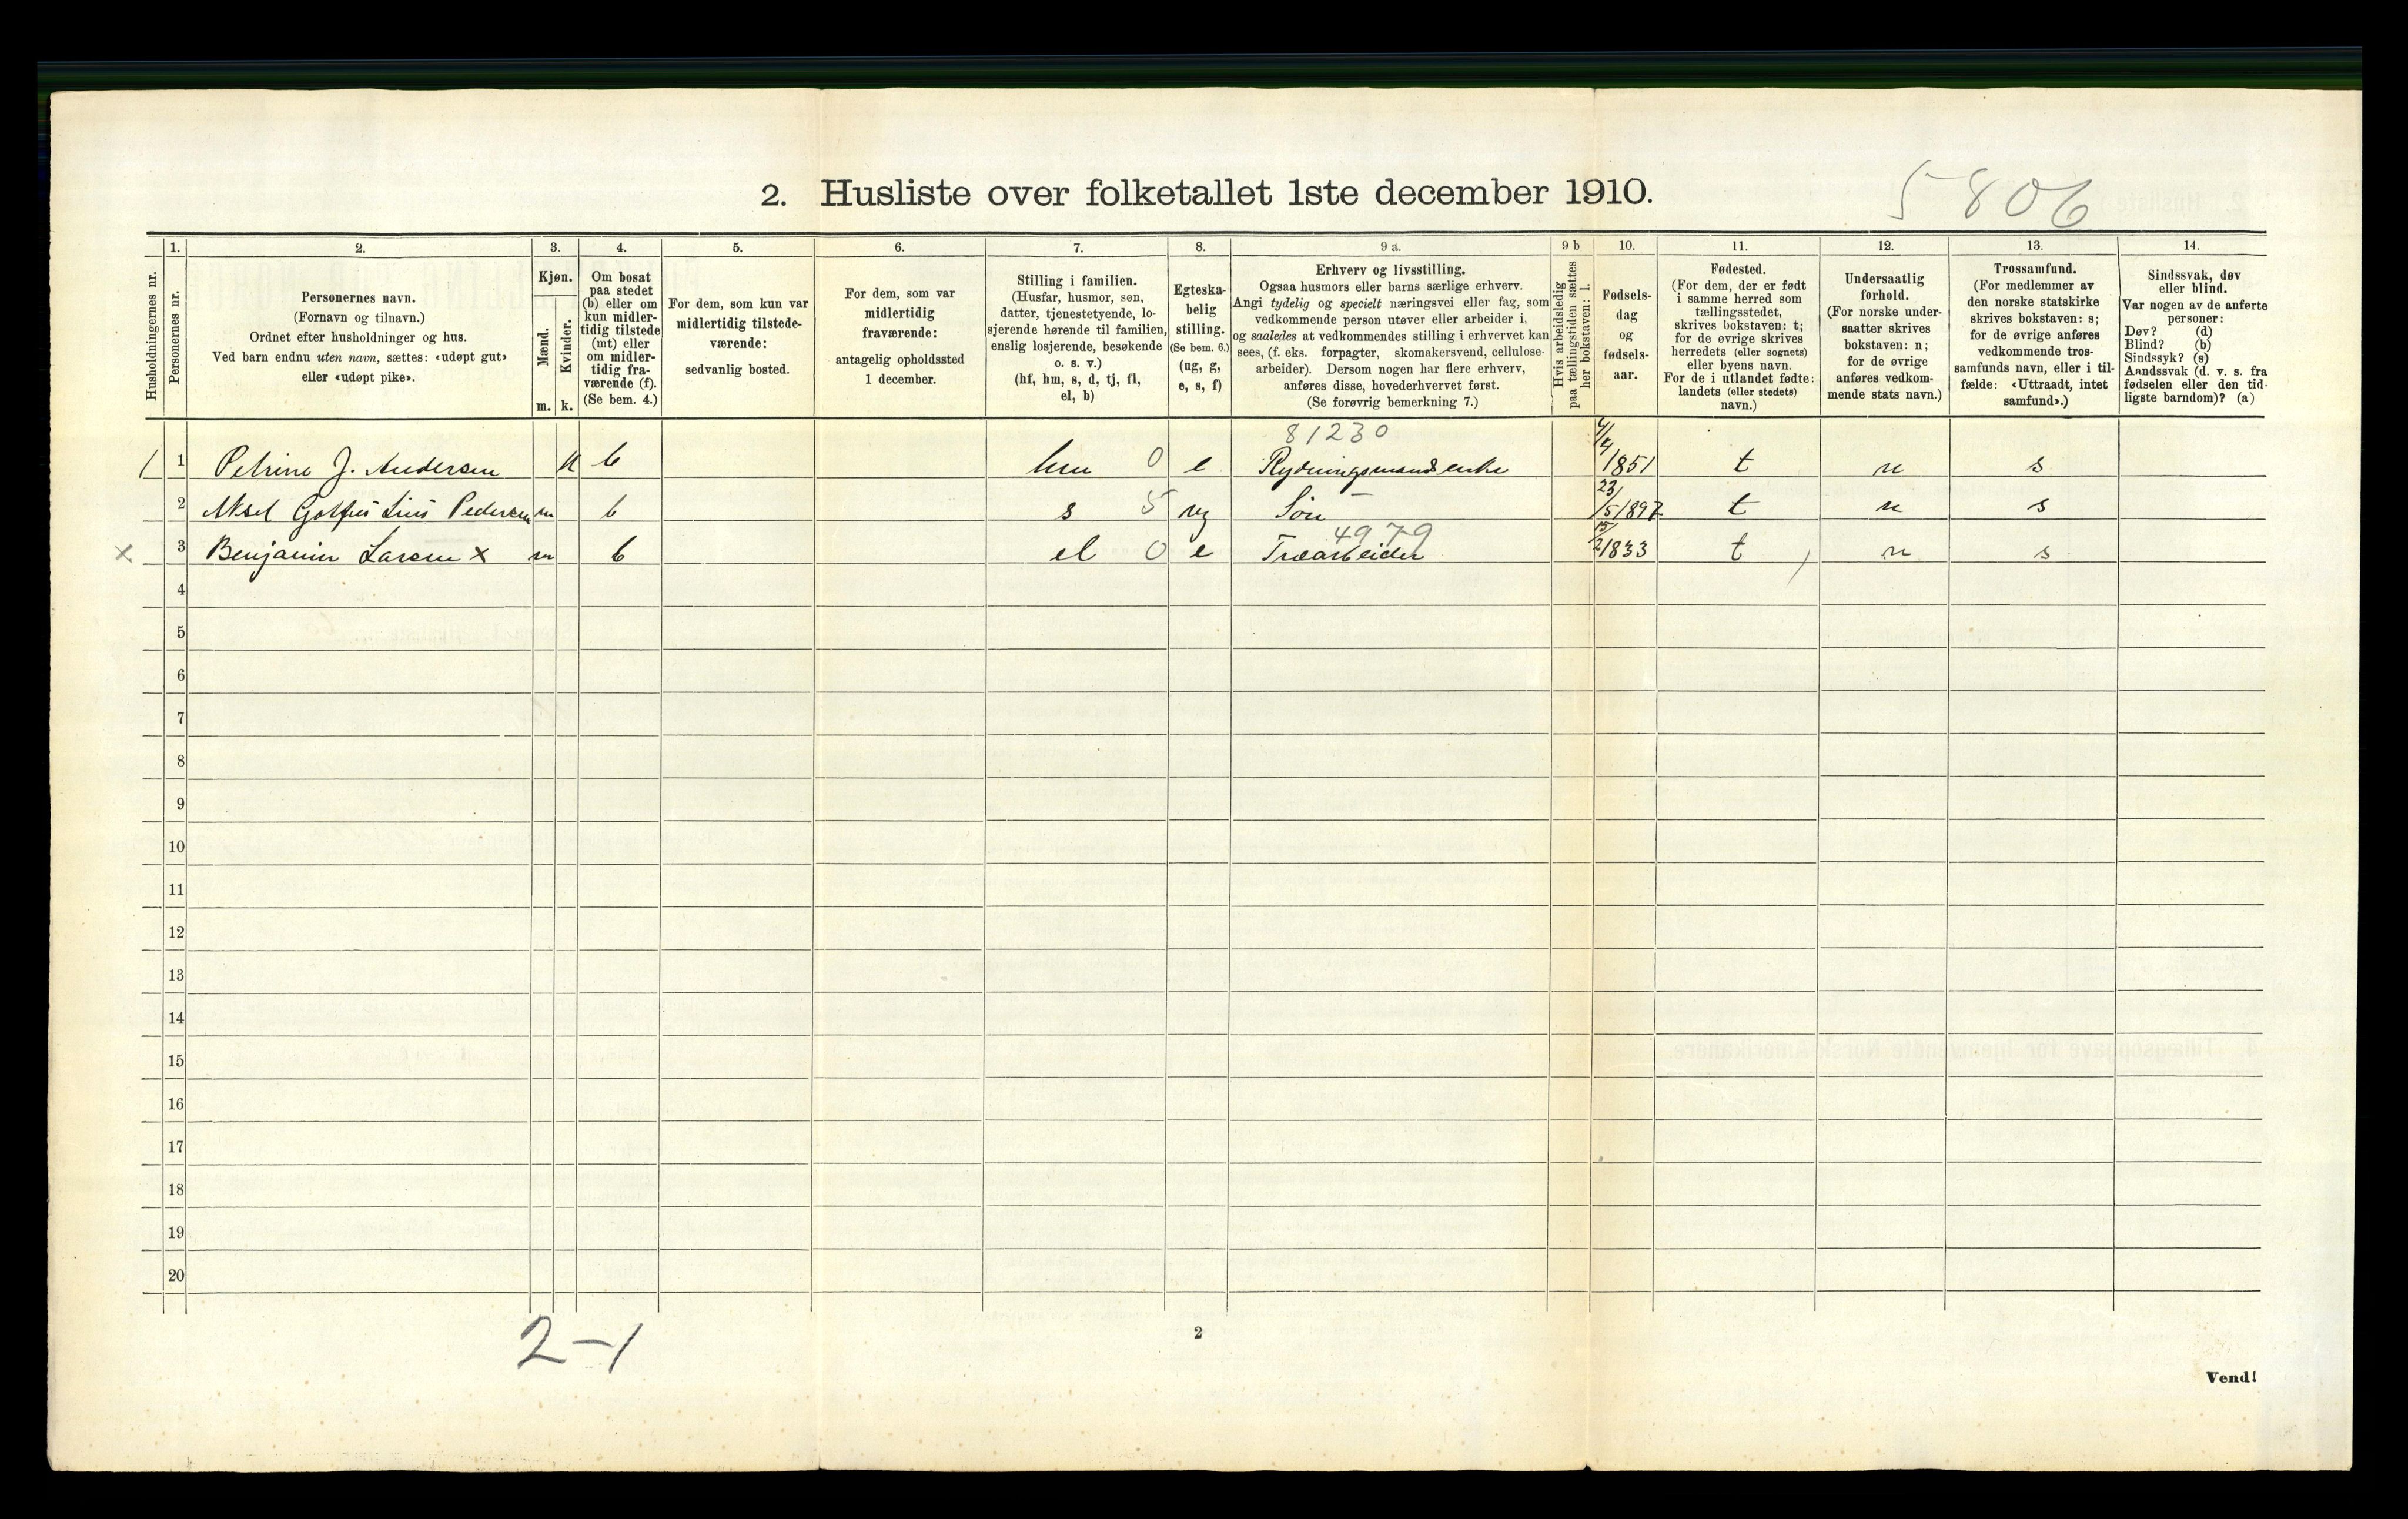 5806
2. Husliste over folketallet 1ste december 1910.
Husholdningernes nr.
1.
Personernes nr.
2.
Personernes navn.
(Fornavn og tilnavn.)
Ordnet efter husholdninger og hus.
Ved barn endnu uten navn, sættes: «udøpt gut»
eller «udøpt pike».
3.
Kjøn.
Mænd.
Kvinder.
m.
k.
4.
Om bosat
paa stedet
(b) eller om
kun midler-
tidig tilstede
(mt) eller
om midler-
tidig fra-
værende (f).
(Se bem. 4.)
5.
For dem, som kun var
midlertidig tilstede-
værende:
sedvanlig bosted.
6.
For dem, som var
midlertidig
fraværende:
antagelig opholdssted
1 december.
7.
Stilling i familien.
(Husfar, husmor, søn,
datter, tjenestetyende, lo-
sjerende hørende til familien,
enslig losjerende, besøkende
o. s. v.)
(hf, hm, s, d, tj, fl,
el, b)
8.
Egteska-
belig
stilling.
(Se bem. 6.)
(ug, g,
e, s, f)
9 a.
Erhverv og livsstilling.
Ogsaa husmors eller barns særlige erhverv.
Angi tydelig og specielt næringsvei eller fag, som
vedkommende person utøver eller arbeider i,
og saaledes at vedkommendes stilling i erhvervet kan
sees, (f. eks. forpagter, skomakersvend, cellulose-
arbeider). Dersom nogen har flere erhverv,
anføres disse, hovederhvervet først.
(Se forøvrig bemerkning 7.)
9 b
Hvis arbeidsledig
paa tællingstiden sættes
her bokstaven: l.
10.
Fødsels-
dag
og
fødsels-
aar.
11.
Fødested.
(For dem, der er født
i samme herred som
tællingsstedet,
skrives bokstaven: t;
for de øvrige skrives
herredets (eller sognets)
eller byens navn.
For de i utlandet fødte:
landets (eller stedets)
navn.)
12.
Undersaatlig
forhold.
(For norske under-
saatter skrives
bokstaven: n;
for de øvrige
anføres vedkom-
mende stats navn.)
13.
Trossamfund.
(For medlemmer av
den norske statskirke
skrives bokstaven: s;
for de øvrige anføres
vedkommende tros-
samfunds navn, eller i til-
fælde: «Uttraadt, intet
samfund».)
14.
Sindssvak, døv
eller blind.
Var nogen av de anførte
personer:
Døv? (d)
Blind? (b)
Sindssyk? (s)
Aandssvak (d. v. s. fra
fødselen eller den tid-
ligste barndom)? (a)
81230
1 1 Petrine J. Andersen k b hm 0 e Rydningsmandsenke 4/4 1851 t n s
2 Aksel Pedersen m b s 5 ug Søn – 23/5 1897 t n s
4979
x 3 Benjamin Larsen x m b el 0 e Træarbeider 15/2 1833 t n s
4
5
6
7
8
9
10
11
12
13
14
15
16
17
18
19
20
2-1
2
Vend!